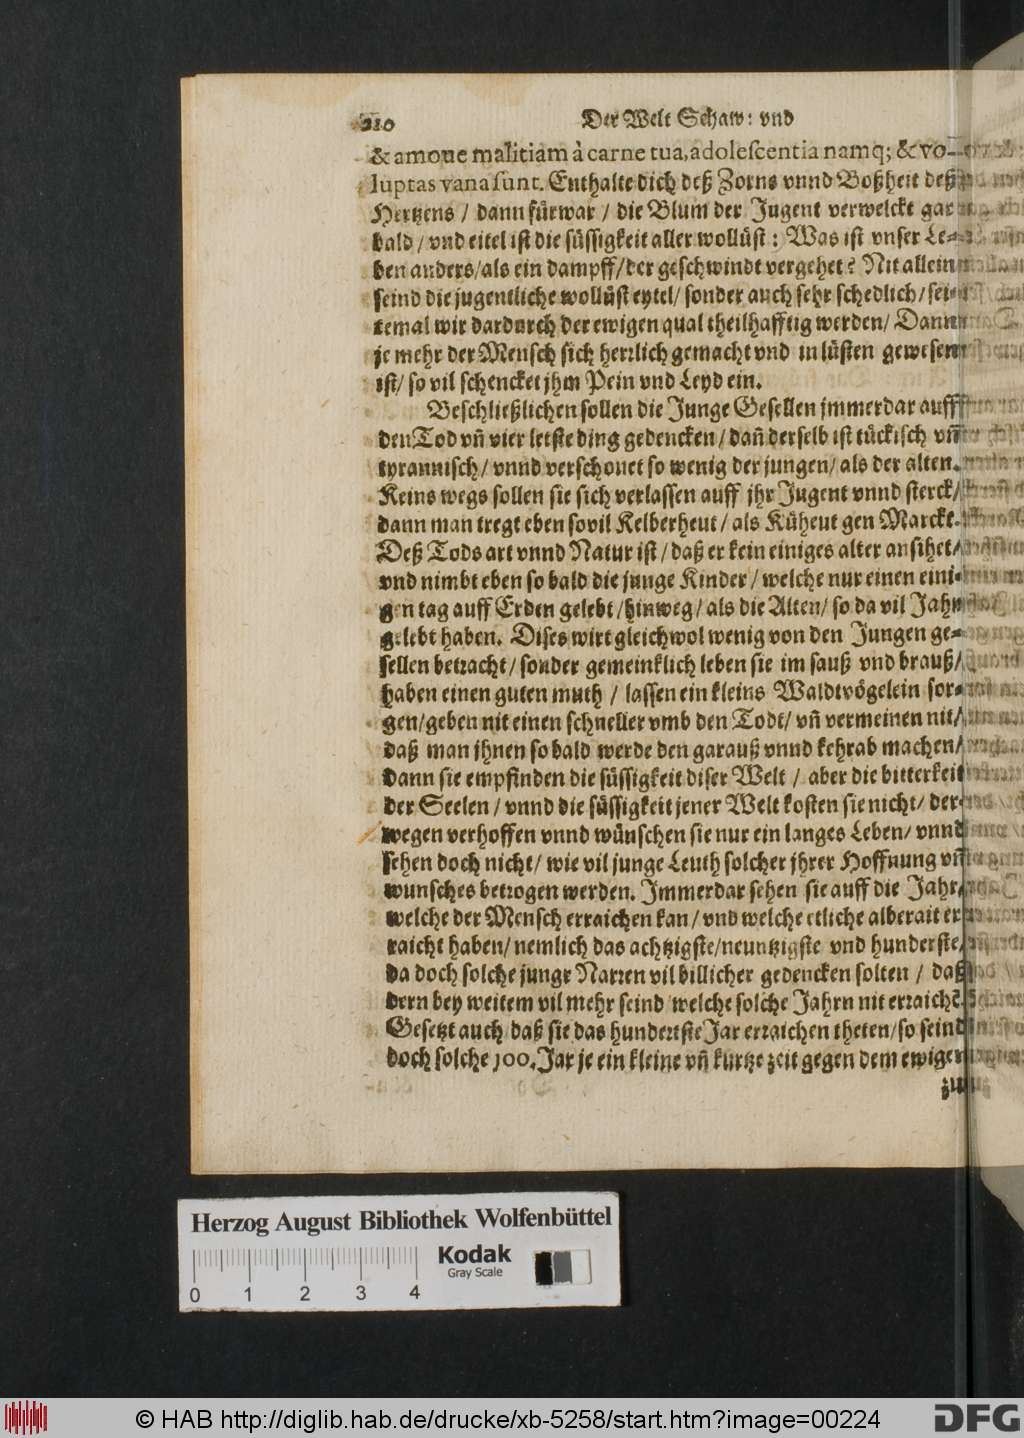 210 Der Welt Schaw: vnd
& amoue malitiam à carne tua, adolescentia namq; & vo-
luptas vana sunt. Enthalte dich deß Zorns vnnd Boßheit deß
Hertzens / dann fürwar / die Blum der Jugent verwelckt gar
bald / vnd eitel ist die süssigkeit aller wollüst: Was ist vnser Le-
ben anders / als ein dampff / der geschwindt vergehet? Nit allein
seind die jugentliche wollüst eytel / sonder auch sehr schedlich / sei-
temal wir dardurch der ewigen qual theilhafftig werden / Dann
je mehr der Mensch sich herrlich gemacht vnd in lüsten gewesen
ist / so vil schencket jhm Pein vnd Leyd ein.
Beschließlichen sollen die Junge Gesellen jmmerdar auff
den Tod vñ vier letste ding gedencken / dañ derselb ist tückisch vñ
tyrannisch / vnnd verschonet so wenig der jungen / als der alten.
Keins wegs sollen sie sich verlassen auff jhr Jugent vnnd sterck /
dann man tregt eben sovil Kelberheut / als Küheut gen Marckt.
Deß Tods art vnnd Natur ist / daß er kein einiges alter ansihet /
vnd nimbt eben so bald die junge Kinder / welche nur einen eini-
gen tag auff Erden gelebt / hinweg / als die Alten / so da vil Jahr
gelebt haben. Dises wirt gleichwol wenig von den Jungen ge-
sellen betracht / sonder gemeinklich leben sie im sauß vnd brauß /
haben einen guten muth / lassen ein kleins Waldtvögelein sor-
gen / geben nit einen schneller vmb den Todt / vñ vermeinen nit /
daß man jhnen so bald werde den garauß vnnd kehrab machen /
dann sie empfinden die süssigkeit diser Welt / aber die bitterkeit
der Seelen / vnnd die süssigkeit jener Welt kosten sie nicht / der-
wegen verhoffen vnnd wünschen sie nur ein langes Leben / vnnd
sehen doch nicht / wie vil junge Leuth solcher jhrer Hoffnung vñ
wunsches betrogen werden. Immerdar sehen sie auff die Jahr /
welche der Mensch erraichen kan / vnd welche etliche alberait er
raicht haben / nemlich das achtzigste / neuntzigste vnd hunderste /
da doch solche junge Narren vil billicher gedencken solten / daß
dern bey weitem vil mehr seind welche solche Jahrn nit erraichē.
Gesetzt auch daß sie das hundertste Jar erraichen theten / so seind
doch solche 100. Jar je ein kleine vñ kurtze zeit gegen dem ewigen
zu
Herzog August Bibliothek Wolfenbüttel
Kodak
Gray Scale
0 1 2 3 4
© HAB http://diglib.hab.de/drucke/xb-5258/start.htm?image=00224
DFG